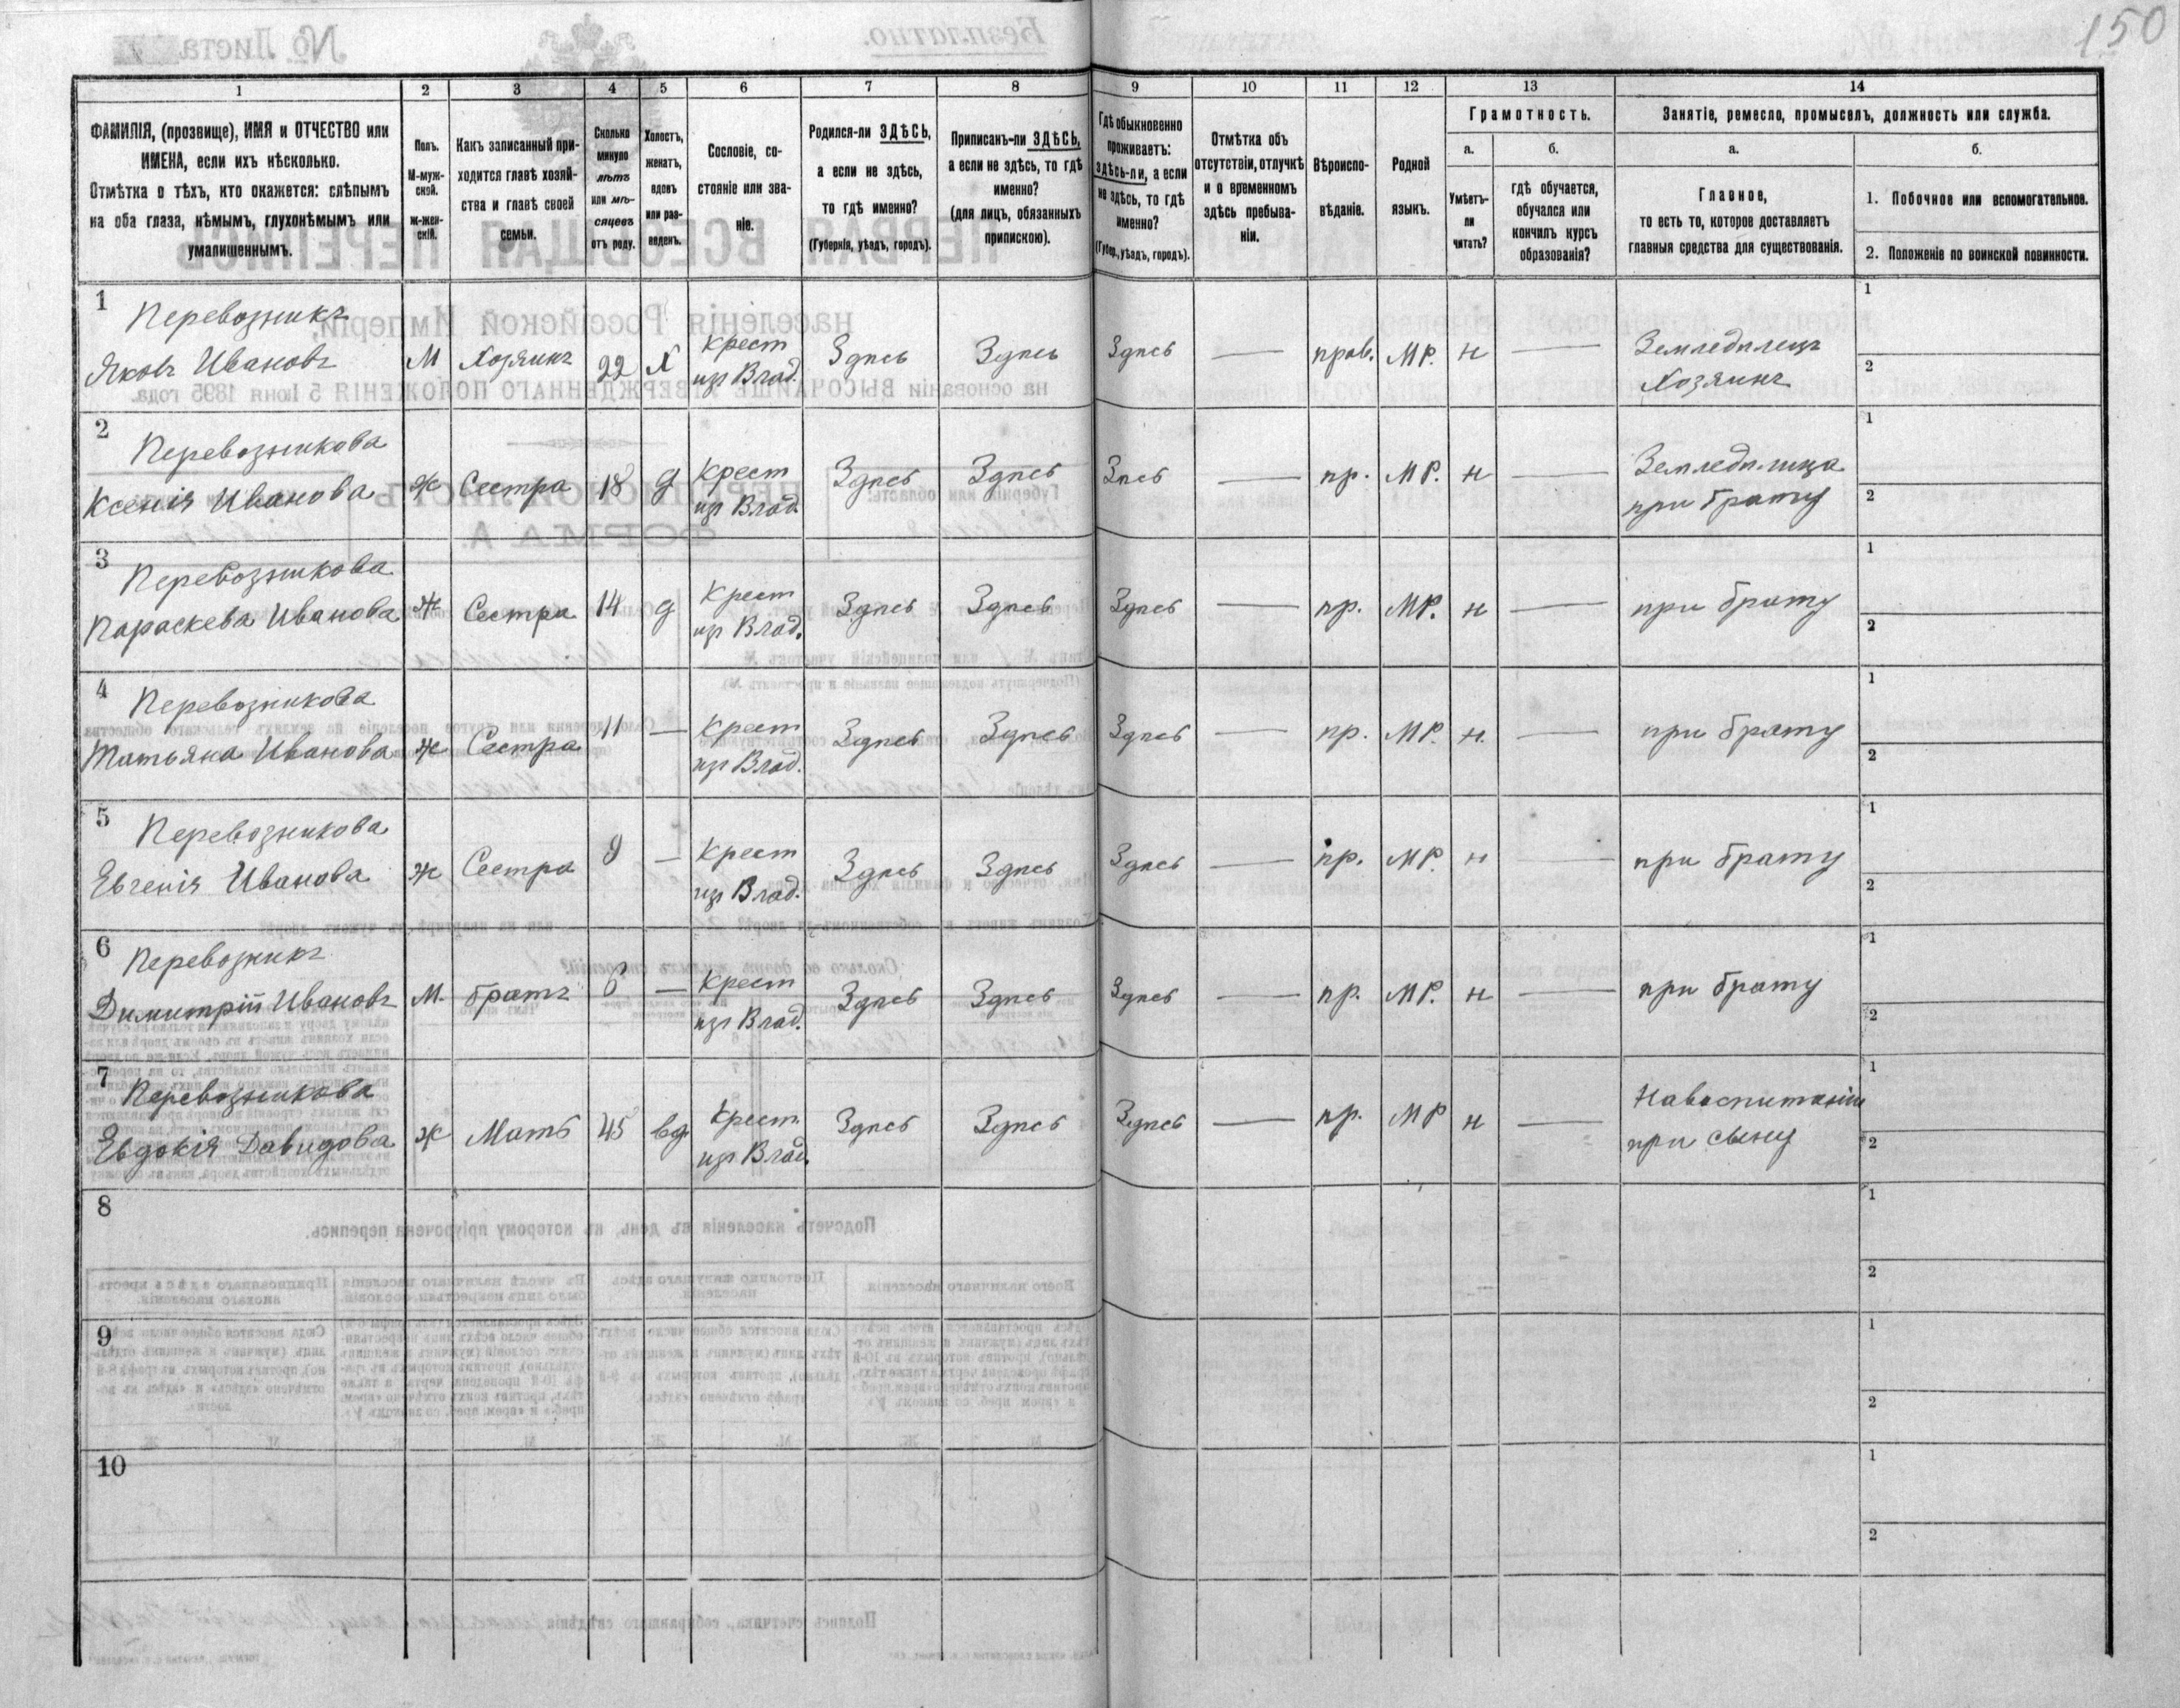 150
1 2 3 4 5 6 7 8 9 10 11 12 13 14
ФАМИЛІЯ, (прозвище), ИМЯ и ОТЧЕСТВО или
ИМЕНА, если ихъ нѣсколько.
Отмѣтка о тѣхъ, кто окажется: слѣпымъ
на оба глаза, нѣмымъ, глухонѣмымъ или
умалишеннымъ.
Полъ.
М-муж-
ской.
ж-жен-
скій.
Какъ записанный при-
ходится главѣ хозяй-
ства и главѣ своей
семьи.
Сколько
минуло
лѣтъ
или мѣ-
сяцевъ
отъ роду.
Холостъ,
женатъ,
вдовъ
или раз-
веденъ.
Сословіе, со-
стояніе или зва-
ніе.
Родился-ли ЗДѢСЬ,
а если не здѣсь,
то гдѣ именно?
(Губернія, уѣздъ, городъ).
Приписанъ-ли ЗДѢСЬ,
а если не здѣсь, то гдѣ
именно?
(для лицъ, обязанныхъ
припискою).
Гдѣ обыкновенно
проживаетъ:
здѣсь-ли, а если
не здѣсь, то гдѣ
именно?
(Губер., уѣздъ, городъ).
Отмѣтка объ
отсутствіи, отлучкѣ
и о временномъ
здѣсь пребыва-
ніи.
Вѣроиспо-
вѣданіе.
Родной
языкъ.
Грамотность.
а.
Умѣетъ-
ли
читать?
б.
гдѣ обучается,
обучался или
кончилъ курсъ
образованія?
Занятіе, ремесло, промыселъ, должность или служба.
а.
Главное,
то есть то, которое доставляетъ
главныя средства для существованія.
б.
1. Побочное или вспомогательное.
2. Положеніе по воинской повинности.
1 Перевозникъ
Яковъ Ивановъ М Хозяинъ 22 Х Крест из Влад. Здѣсь Здѣсь Здѣсь — прав. МР. н — Земледѣлецъ
Хозяинъ
1
2
2 Перевозникова
Ксенія Иванова Ж Сестра 18 д Крест из Влад. Здѣсь Здѣсь Зѣсь — пр. МР. н — Земледѣлица
при брату
1
2
3 Перевозникова
Параскева Иванова Ж Сестра 14 д Крест из Влад. Здѣсь Здѣсь Здѣсь — пр. МР. н — при брату
1
2
4 Перевозникова
Татьяна Иванова Ж Сестра 11 — Крест из Влад. Здѣсь Здѣсь Здѣсь — пр. МР. н. — при брату
1
2
5 Перевозникова
Евгенія Иванова ж Сестра 9 — Крест из Влад. Здѣсь Здѣсь Здѣсь — пр. МР. н — при брату
1
2
6 Перевозникъ
Димитрій Ивановъ М. братъ — Крест из Влад. Здѣсь Здѣсь Здѣсь — пр. МР. н — при брату
1
2
7 Перевозникова
Евдокія Давидова ж Мать 45 вд. Крест. из Влад. Здѣсь Здѣсь Здѣсь — пр. МР н — Навоспитаніи
при сыну
1
2
8
1
2
9
1
2
10
1
2